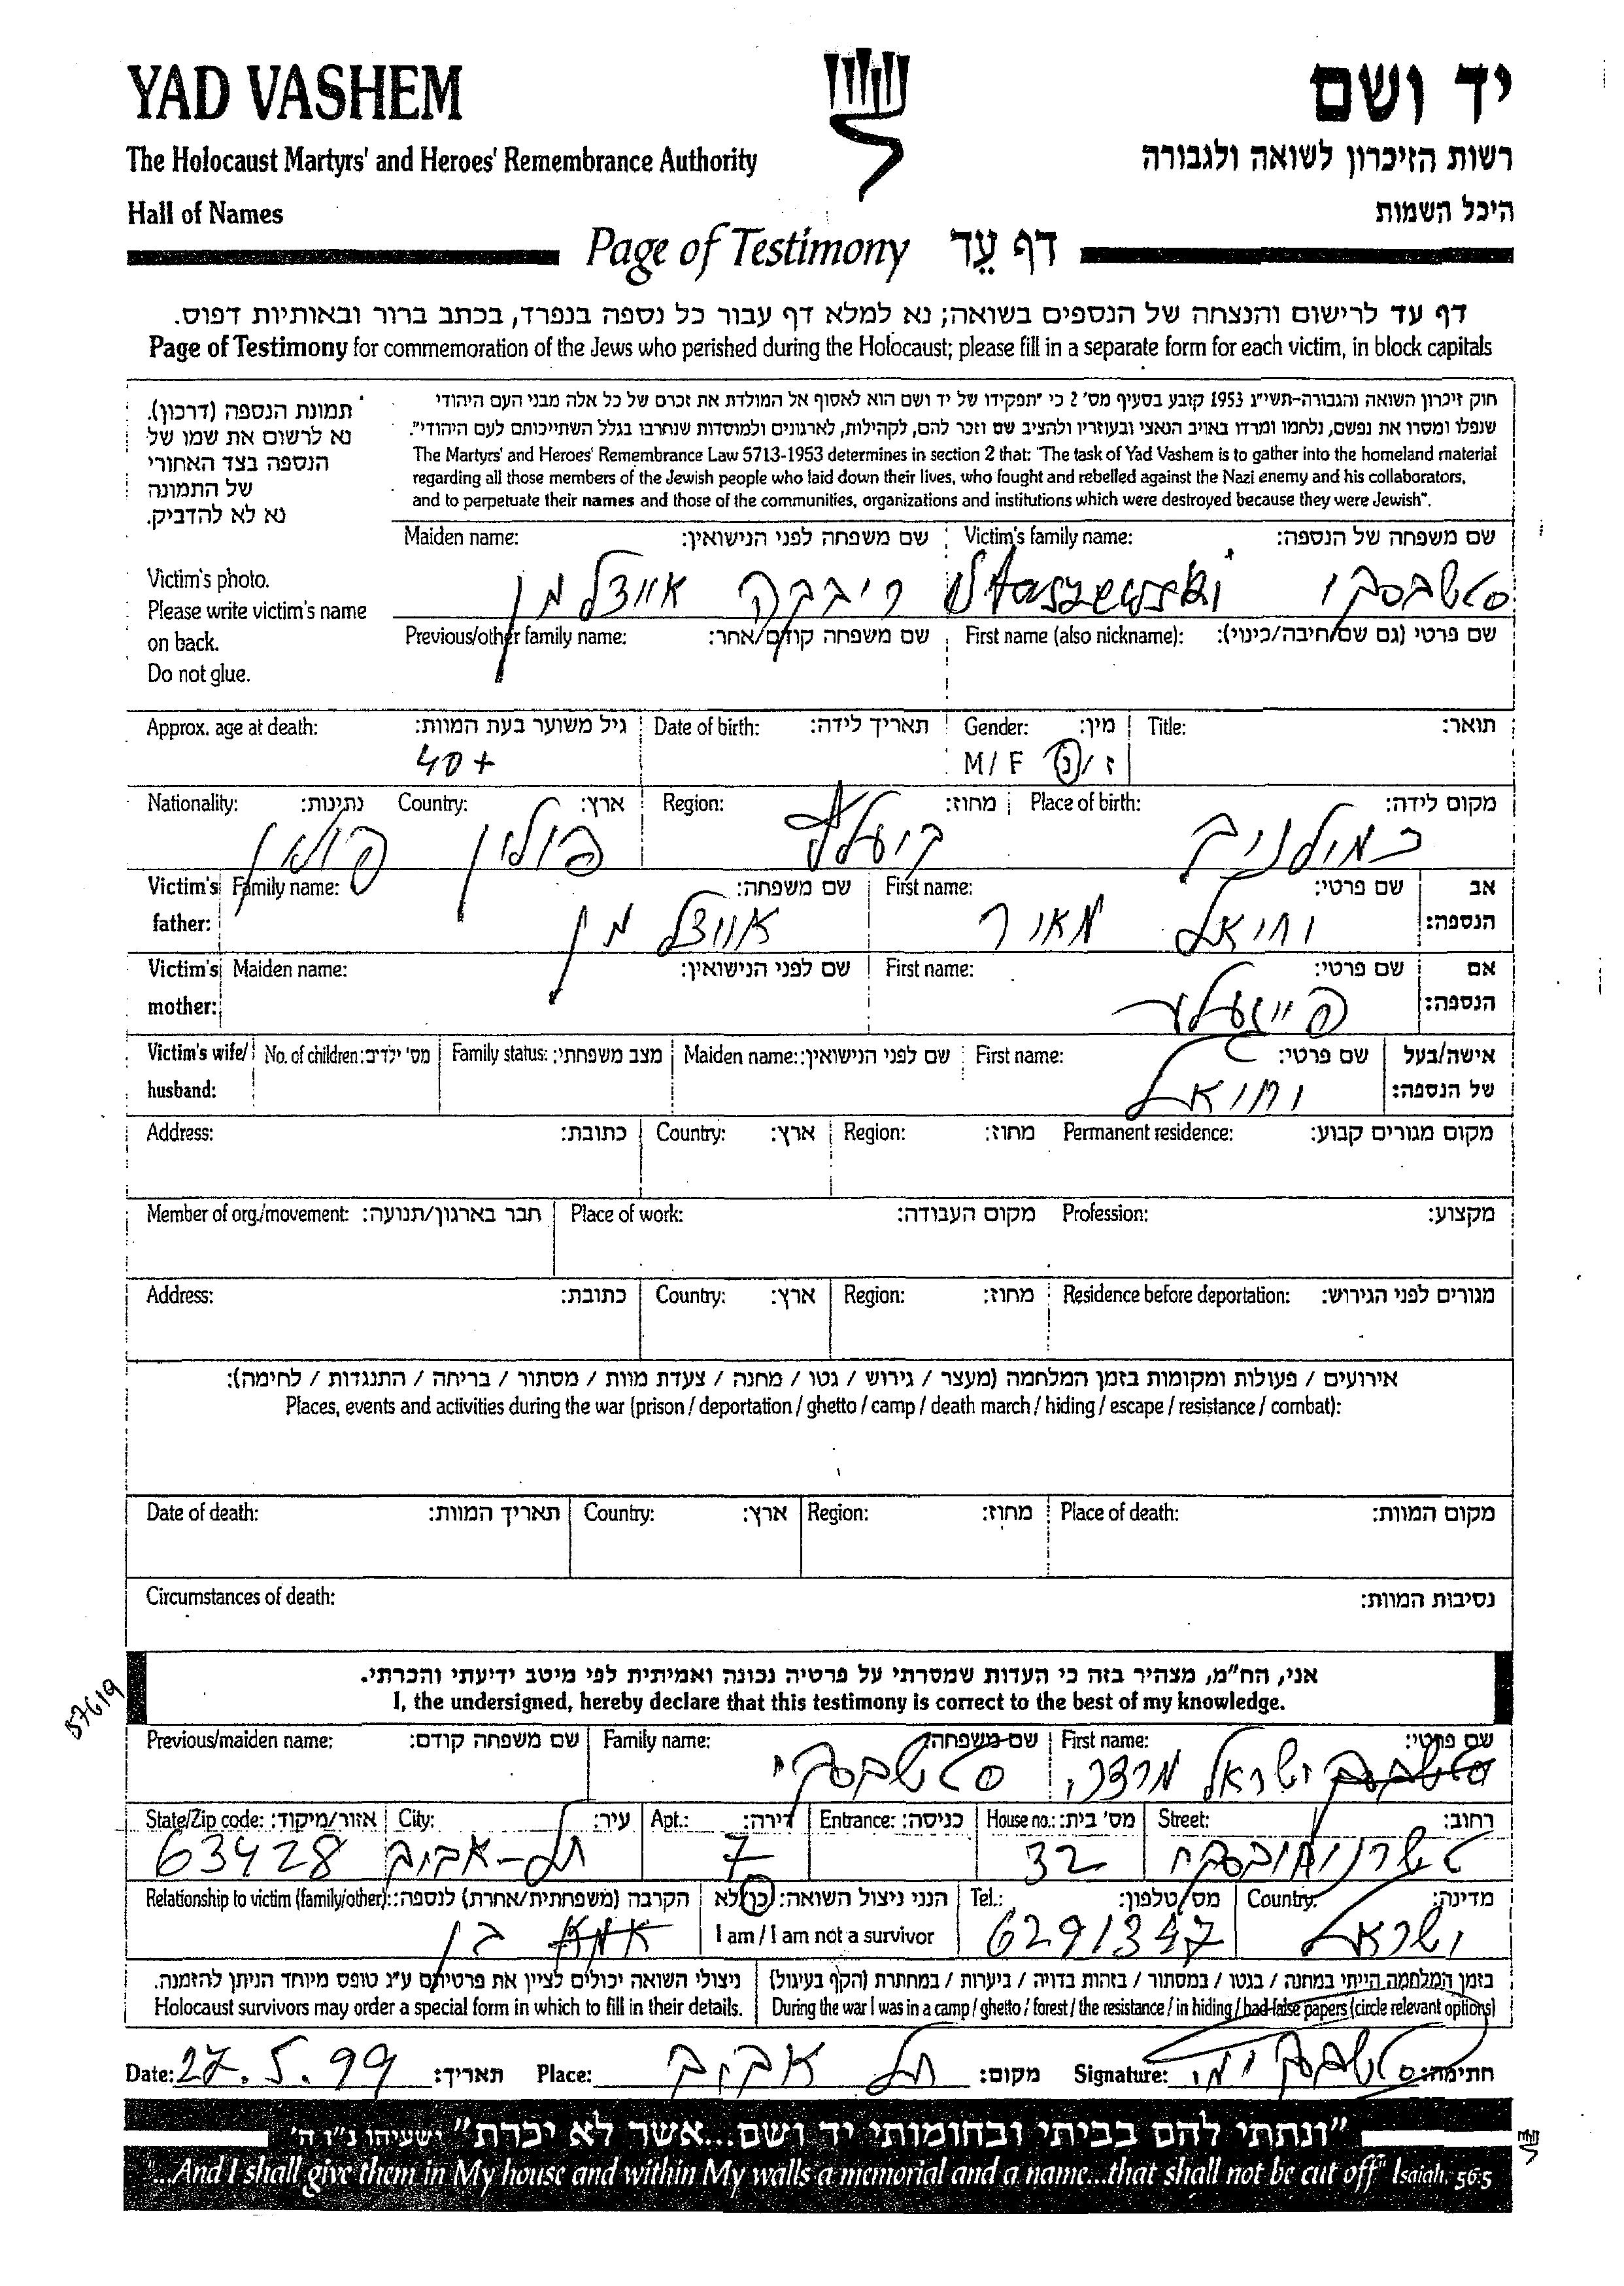 YAD VASHEM
יד ושם
The Holocaust Martyrs' and Heroes' Remembrance Authority
רשות הזיכרון לשואה ולגבורה
Hall of Names
היכל השמות
Page of Testimony דף עֵד
דף עד לרישום והנצחה של הנספים בשואה; נא למלא דף עבור כל נספה בנפרד, בכתב ברור ובאותיות דפוס.
Page of Testimony for commemoration of the Jews who perished during the Holocaust; please fill in a separate form for each victim, in block capitals
תמונת הנספה (דרכון).
נא לרשום את שמו של
הנספה בצד האחורי
של התמונה
נא לא להדביק.
Victim's photo.
Please write victim's name
on back.
Do not glue.
חוק זיכרון השואה והגבורה-תשי"ג 1953 קובע בסעיף מס' 2 כי "תפקידו של יד ושם הוא לאסוף אל המולדת את זכרם של כל אלה מבני העם היהודי
שנפלו ומסרו את נפשם, נלחמו ומרדו באויב הנאצי ובעוזריו ולהציב שם וזכר להם, לקהילות, לארגונים ולמוסדות שנחרבו בגלל השתייכותם לעם היהודי".
The Martyrs' and Heroes' Remembrance Law 5713-1953 determines in section 2 that: "The task of Yad Vashem is to gather into the homeland material
regarding all those members of the Jewish people who laid down their lives, who fought and rebelled against the Nazi enemy and his collaborators,
and to perpetuate their names and those of the communities, organizations and institutions which were destroyed because they were Jewish".
Maiden name: שם משפחה לפני הנישואין: Victim's family name: שם משפחה של הנספה:
סטשבסקי Staszewski ריבקה אייזלמן
Previous/other family name: שם משפחה קודם/אחר: First name (also nickname): שם פרטי (גם שם חיבה/כינוי):
Approx. age at death: גיל משוער בעת המוות: Date of birth: תאריך לידה: Gender: מין: Title: תואר:
40+ M/F ז/נ
Nationality: נתינות: Country: ארץ: Region: מחוז: Place of birth: מקום לידה:
פולין פולין
Victim's father: Family name: שם משפחה: First name: שם פרטי: אב הנספה:
אייזלמן מאיר
Victim's mother: Maiden name: שם לפני הנישואין: First name: שם פרטי: אם הנספה:
Victim's wife/husband: No. of children: מס' ילדים: Family status: מצב משפחתי: Maiden name: שם לפני הנישואין: First name: שם פרטי: אישה/בעל של הנספה:
Address: כתובת: Country: ארץ: Region: מחוז: Permanent residence: מקום מגורים קבוע:
Member of org./movement: חבר בארגון/תנועה: Place of work: מקום העבודה: Profession: מקצוע:
Address: כתובת: Country: ארץ: Region: מחוז: Residence before deportation: מגורים לפני הגירוש:
אירועים / פעולות ומקומות בזמן המלחמה (מעצר / גירוש / גטו / מחנה / צעדת מוות / מסתור / בריחה / התנגדות / לחימה):
Places, events and activities during the war (prison / deportation / ghetto / camp / death march / hiding / escape / resistance / combat):
Date of death: תאריך המוות: Country: ארץ: Region: מחוז: Place of death: מקום המוות:
Circumstances of death: נסיבות המוות:
57619
אני, הח"מ, מצהיר בזה כי העדות שמסרתי על פרטיה נכונה ואמיתית לפי מיטב ידיעתי והכרתי.
I, the undersigned, hereby declare that this testimony is correct to the best of my knowledge.
Previous/maiden name: שם משפחה קודם: Family name: שם משפחה: First name: שם פרטי:
סטשבסקי ישראל מרדכי
State/Zip code: אזור/מיקוד: City: עיר: Apt.: דירה: Entrance: כניסה: House no.: מס' בית: Street: רחוב:
63428 תל-אביב 7 32 טשרניחובסקי
Relationship to victim (family/other): הקרבה (משפחתית/אחרת) לנספה: הנני ניצול השואה: כן/לא Tel.: מס' טלפון: Country: מדינה:
אמא בן I am / I am not a survivor 6291347 ישראל
ניצולי השואה יכולים לציין את פרטיהם ע"ג טופס מיוחד הניתן להזמנה. בזמן המלחמה הייתי במחנה / בגטו / במסתור / בזהות בדויה / ביערות / במחתרת (הקף בעיגול)
Holocaust survivors may order a special form in which to fill in their details. During the war I was in a camp / ghetto / forest / the resistance / in hiding / had false papers (circle relevant options)
Date: 27.5.99 תאריך: Place: תל אביב מקום: Signature: סטשבסקי ימ חתימה:
"ונתתי להם בביתי ובחומותי יד ושם...אשר לא יכרת" ישעיהו נ"ו ה'
"...And I shall give them in My house and within My walls a memorial and a name...that shall not be cut off" Isaiah, 56:5